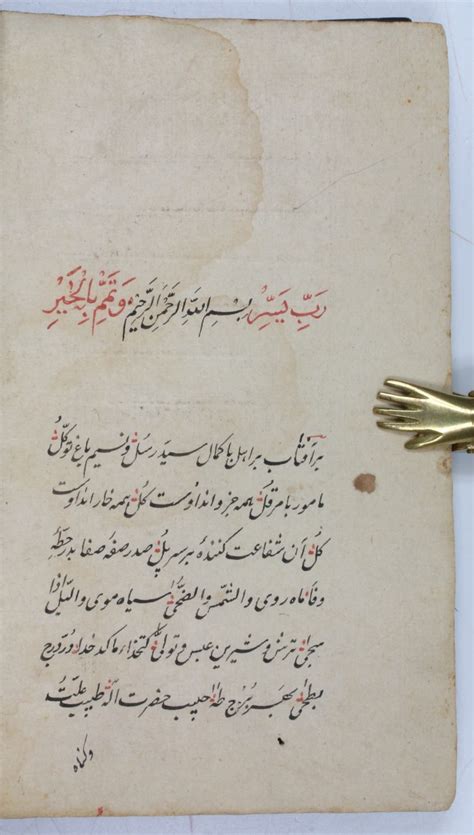 رَبِّ يَسِّرْ بِسْمِ اللّٰهِ الرَّحْمٰنِ الرَّحِيْمِ وَتَمِّمْ بِالْخَيْرِ
بر آفتاب بر اهل با کمال سید رسل و نسیم باغ توکل
مامور بامر قل همه جزو اند اوست کل همه خار اند اوست
کل آن شفاعت کننده بر سر پل صدر صفه صفا بدر خطه
وفا ماه روی والشمس والضحی سیاه موی واللیل اذا
سجی ترش و شیرین عبس وتولی کتخداء ما کد خدا در
بطحی طه حبیب حضرت اله طبیب علت
وکناه